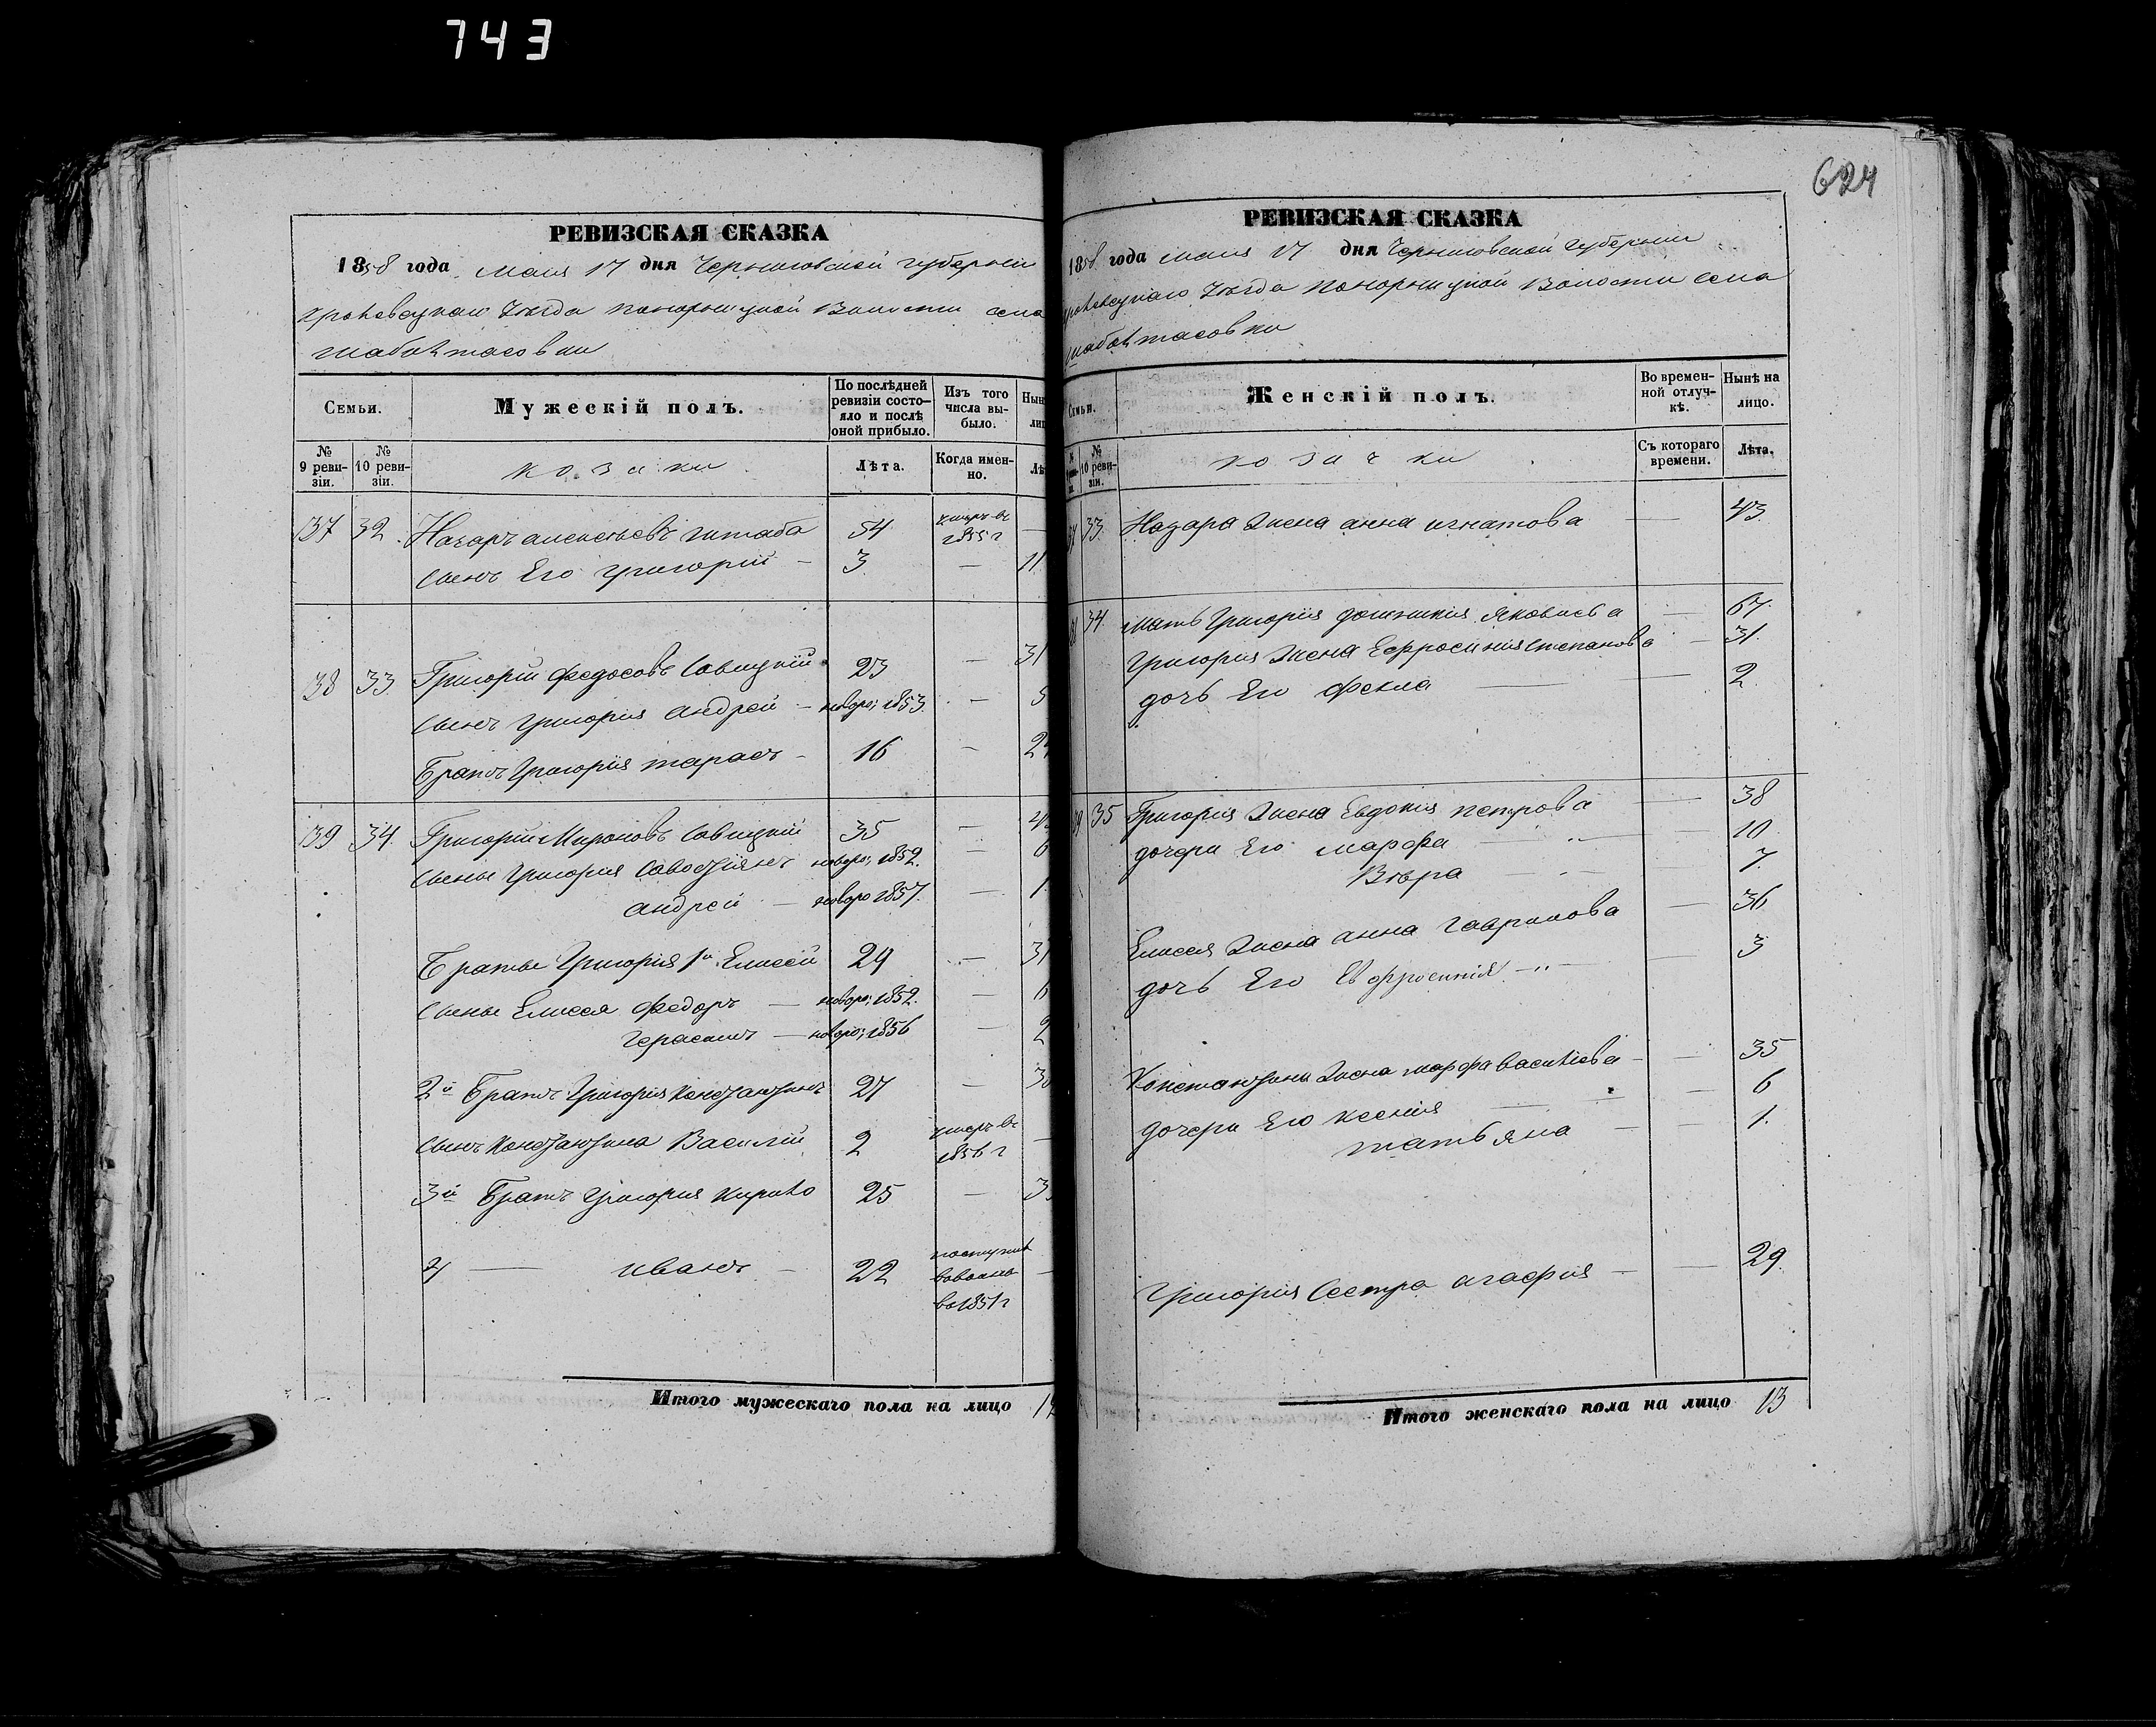 743
624
РЕВИЗСКАЯ СКАЗКА
1858 года Мая 17 дня Черниговской губерніи
Кролевецкаго Уезда Понорницкой Волости села
Шаболтасовки
Семьи.
Мужескій полъ.
По послѣдней ревизіи состо-
яло и послѣ
оной прибыло.
Изъ того
числа вы-
было.
№
9 реви-
зіи.
№
10 реви-
зіи.
козаки
Лѣта.
Когда имен-
но.
137 32. Назаръ Алексеевъ Штаба 54 умеръ въ 1855 г —
сынъ Его Григорій — 3 — 11
38 33 Григорій Федосовъ Савицкій 23 — 31
сынъ Григорія Андрей — новоро; 1853. — 5
Братъ Григорія Тарасъ — 16 —
139 34. Григорій Мироновъ Савицкій 35 —
сыны Григорія новоро; 1852. — 6
Андрей — новоро 1857. — 1
Братья Григорія 1й Елисей 29 —
сыны Елисея Федоръ — новоро; 1852. — 6
Герасимъ — новоро; 1856 — 2
2й Братъ Григорія Константинъ 27 —
сынъ Константина Василій 2 умеръ въ 1856 г —
3й Братъ Григорія Кирило 25 —
4 — Иванъ — 22 поступил во 1851 г —
Итого мужескаго пола на лицо
РЕВИЗСКАЯ СКАЗКА
1858 года Мая 17 дня Черниговской Губерніи
Кролевецкаго Уезда Понорницкой Волости села
Шаболтасовки
Семьи.
Женскій полъ.
Во времен-
ной отлуч-
кѣ.
Нынѣ на
лицо.
№
10 реви-
зіи.
козачки
Съ котораго
времени.
Лѣта.
33. Назара Жена Анна Игнатова — 43.
34. Мать Григорія Яковлева — 67.
Григорія Жена Ефросинія Степанова — 31.
дочь Его Фекла — — 2
35 Григорія Жена Евдокія Петрова — 38
дочери Его Марфа — — 10
Вѣра — — 7.
Елисея Жена Анна Гаврилова — 36
дочь Его Евфросинія — — 3
Константина Жена Марфа Василіева — — 35
дочери Его Ксенія — — 6
Татьяна — — 1.
Григорія Сестра Агафія — — 29.
Итого женскаго пола на лицо 13